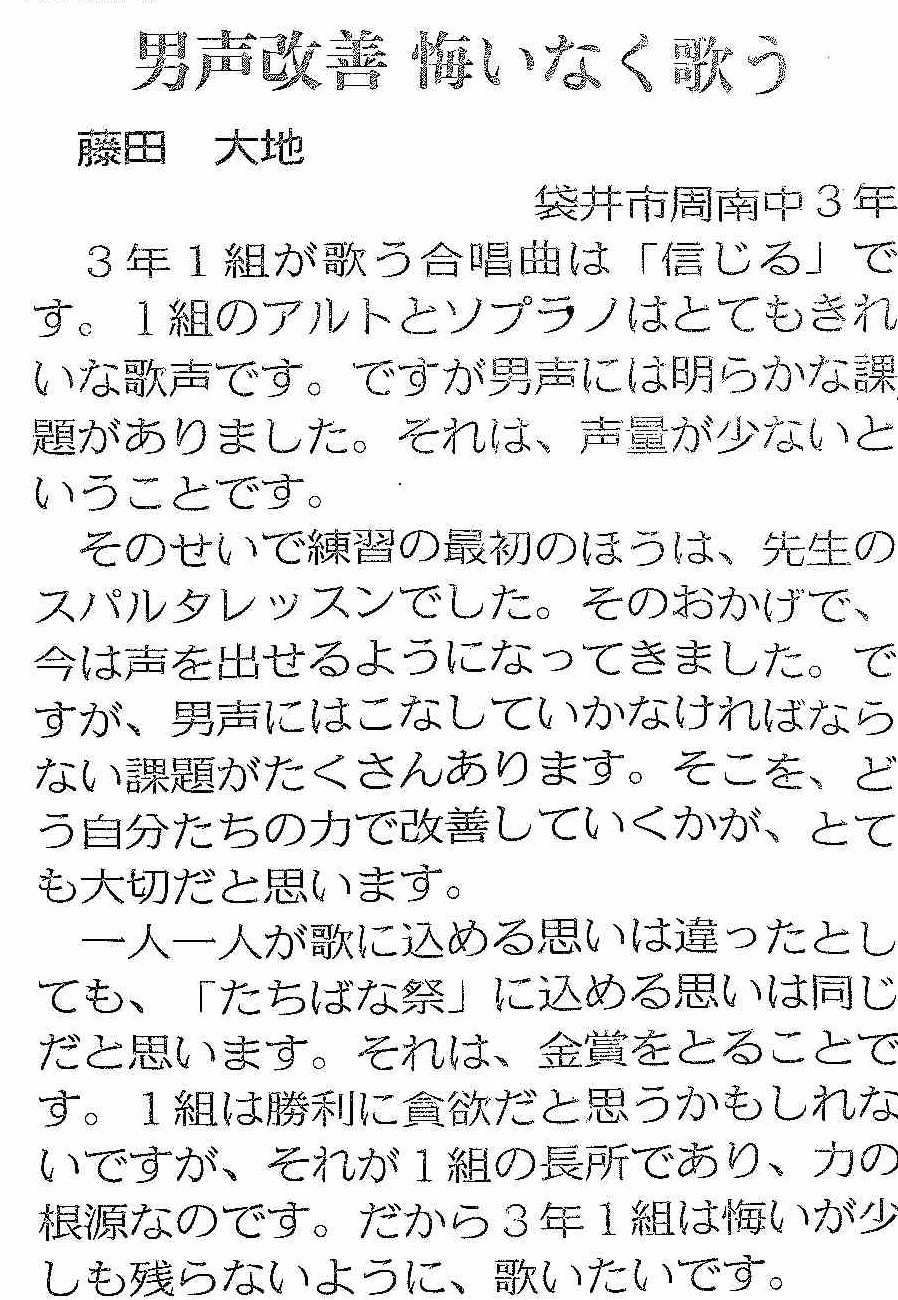 男声改善 悔いなく歌う
藤田　大地
袋井市周南中３年
　３年１組が歌う合唱曲は「信じる」で
す。１組のアルトとソプラノはとてもきれ
いな歌声です。ですが男声には明らかな課
題がありました。それは、声量が少ないと
いうことです。
　そのせいで練習の最初のほうは、先生の
スパルタレッスンでした。そのおかげで、
今は声を出せるようになってきました。で
すが、男声にはこなしていかなければなら
ない課題がたくさんあります。そこを、ど
う自分たちの力で改善していくかが、とて
も大切だと思います。
　一人一人が歌に込める思いは違ったとし
ても、「たちばな祭」に込める思いは同じ
だと思います。それは、金賞をとることで
す。１組は勝利に貪欲だと思うかもしれな
いですが、それが１組の長所であり、力の
根源なのです。だから３年１組は悔いが少
しも残らないように、歌いたいです。